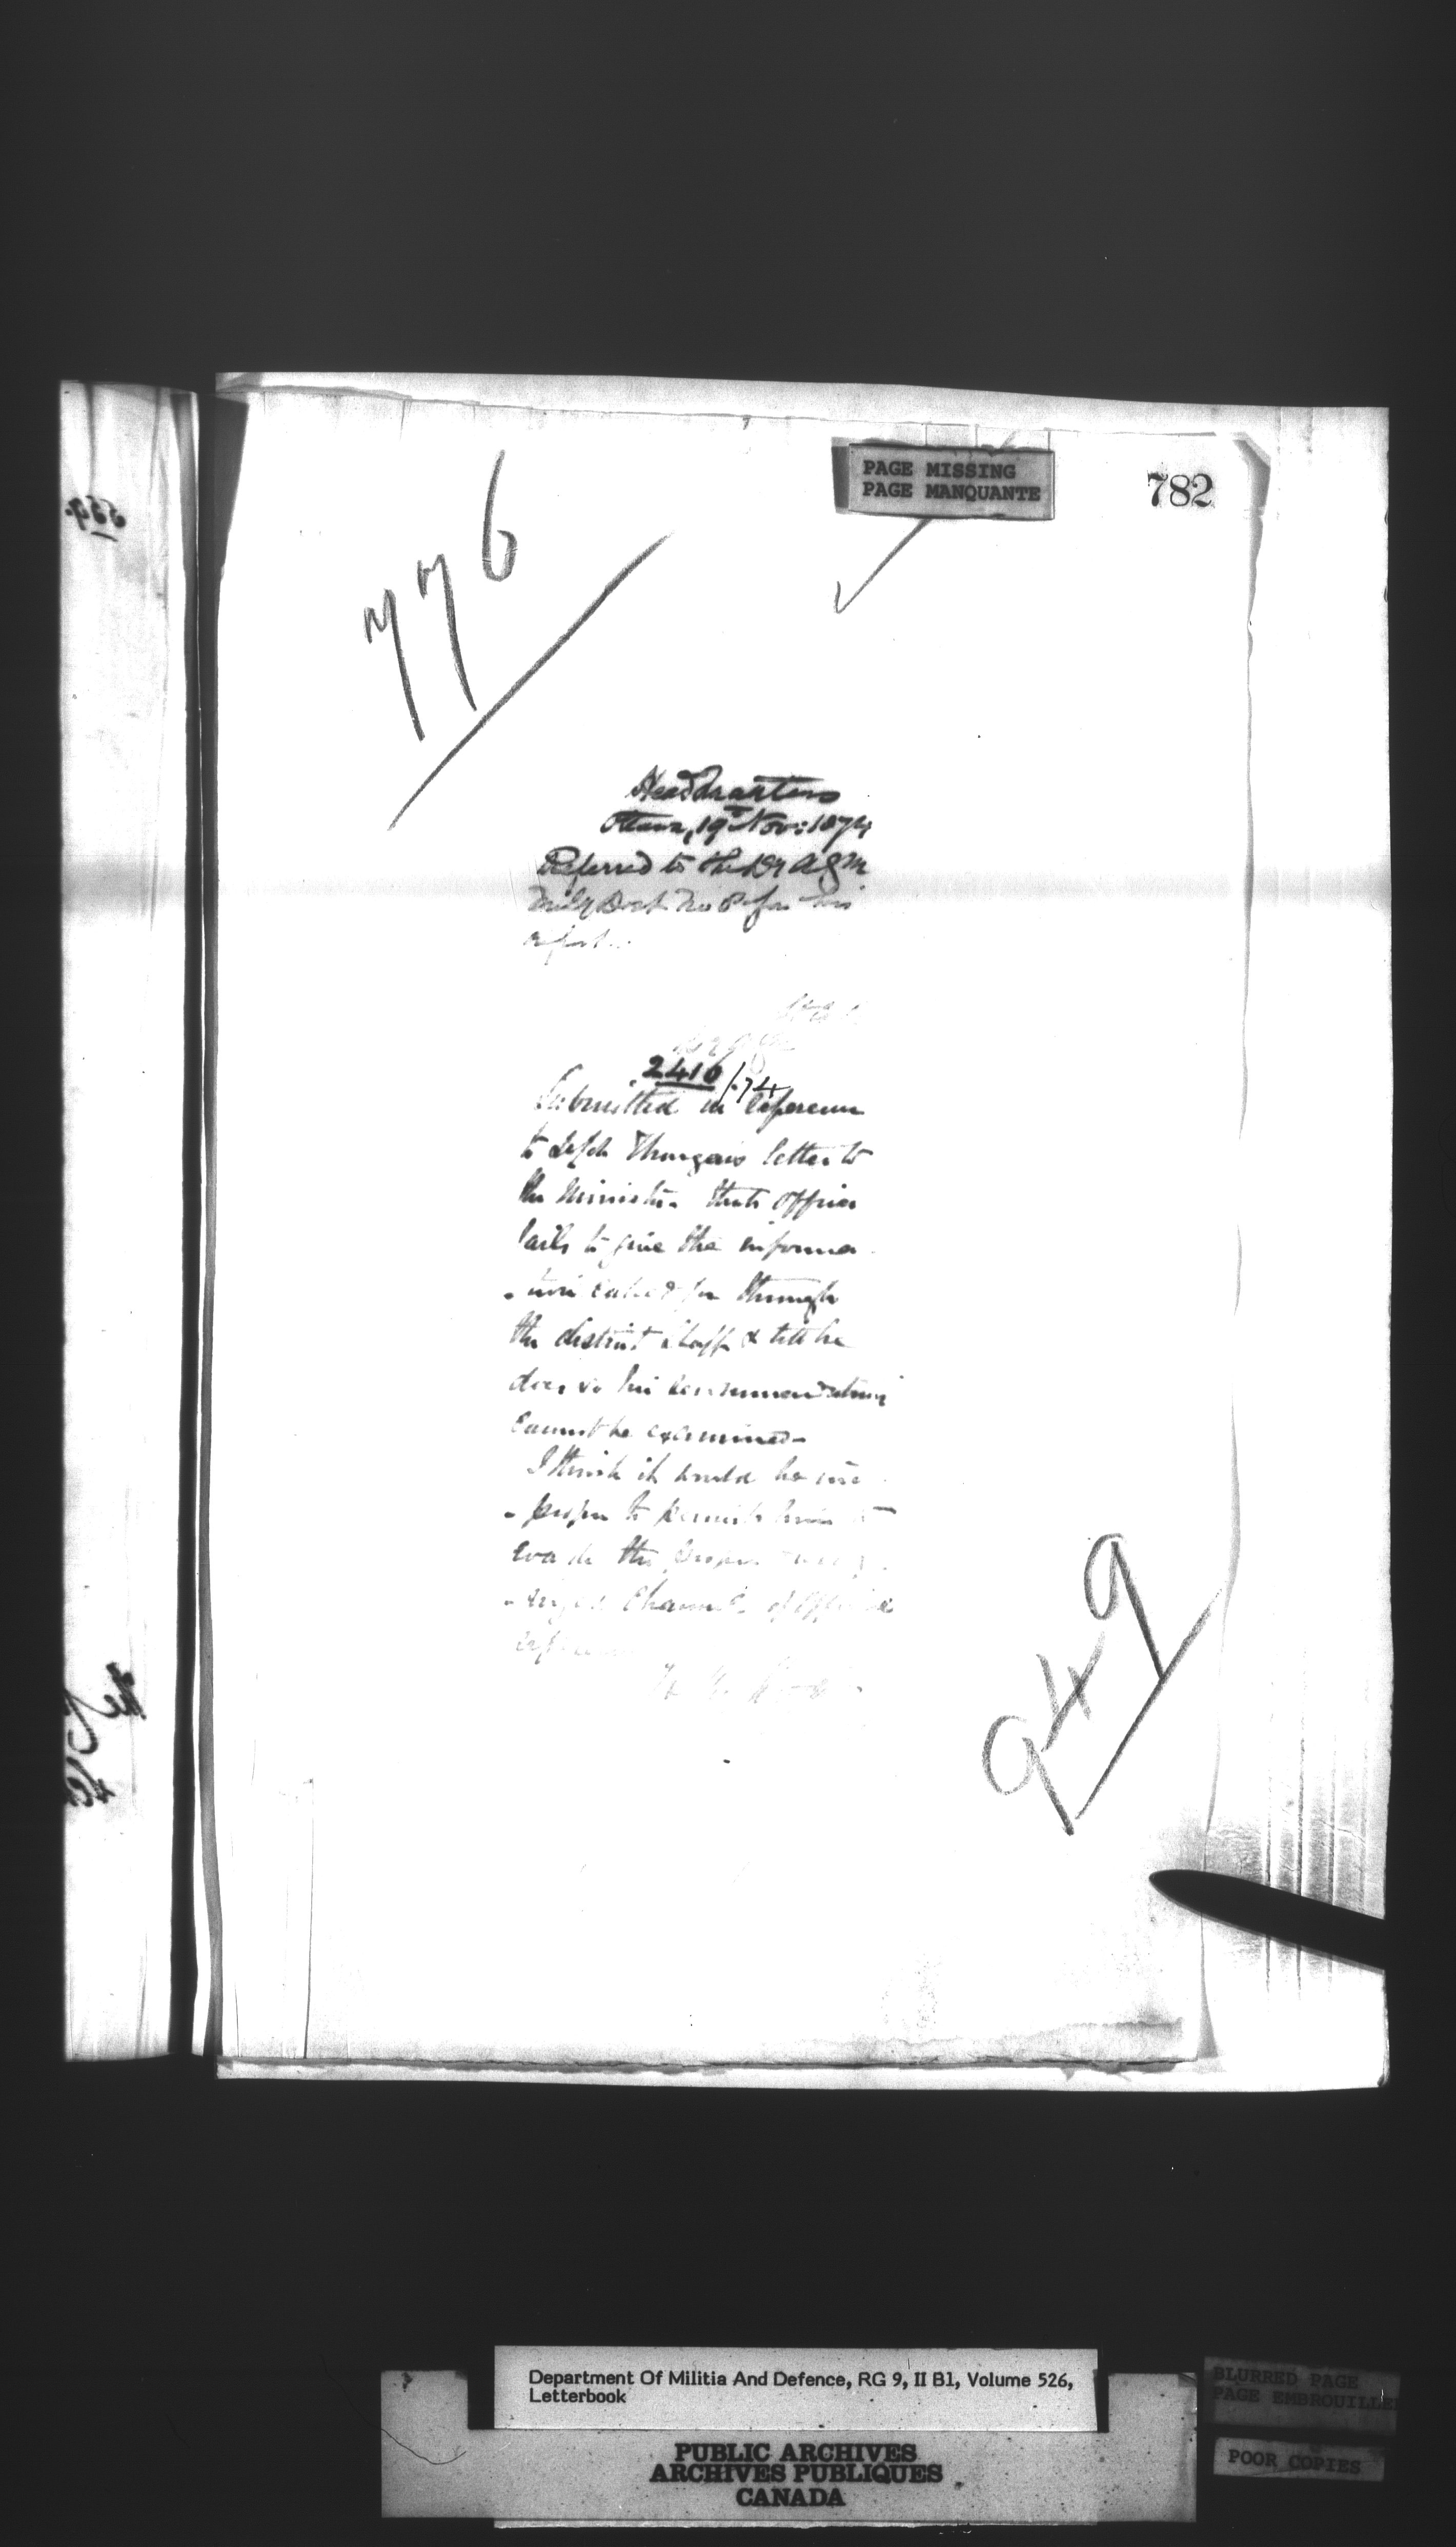 PAGE MISSING
PAGE MANQUANTE
782
776
Headquarters
Ottawa, 19th Nov: 1874
Referred to the Dy A G M
Mily Dist No 8 for his
report.
2416/74
Submitted in reference
to letter to
the Minister. that officer
fails to give the informa
-tion called for through
the district Staff & till he
does so his recommendations
cannot be examined-
I think it would be im
-proper to permit him to
evade the proper
channels of official
reference
949
Department Of Militia And Defence, RG 9, II B1, Volume 526,
Letterbook
PUBLIC ARCHIVES
ARCHIVES PUBLIQUES
CANADA
BLURRED PAGE
PAGE EMBROUILLEE
POOR COPIES